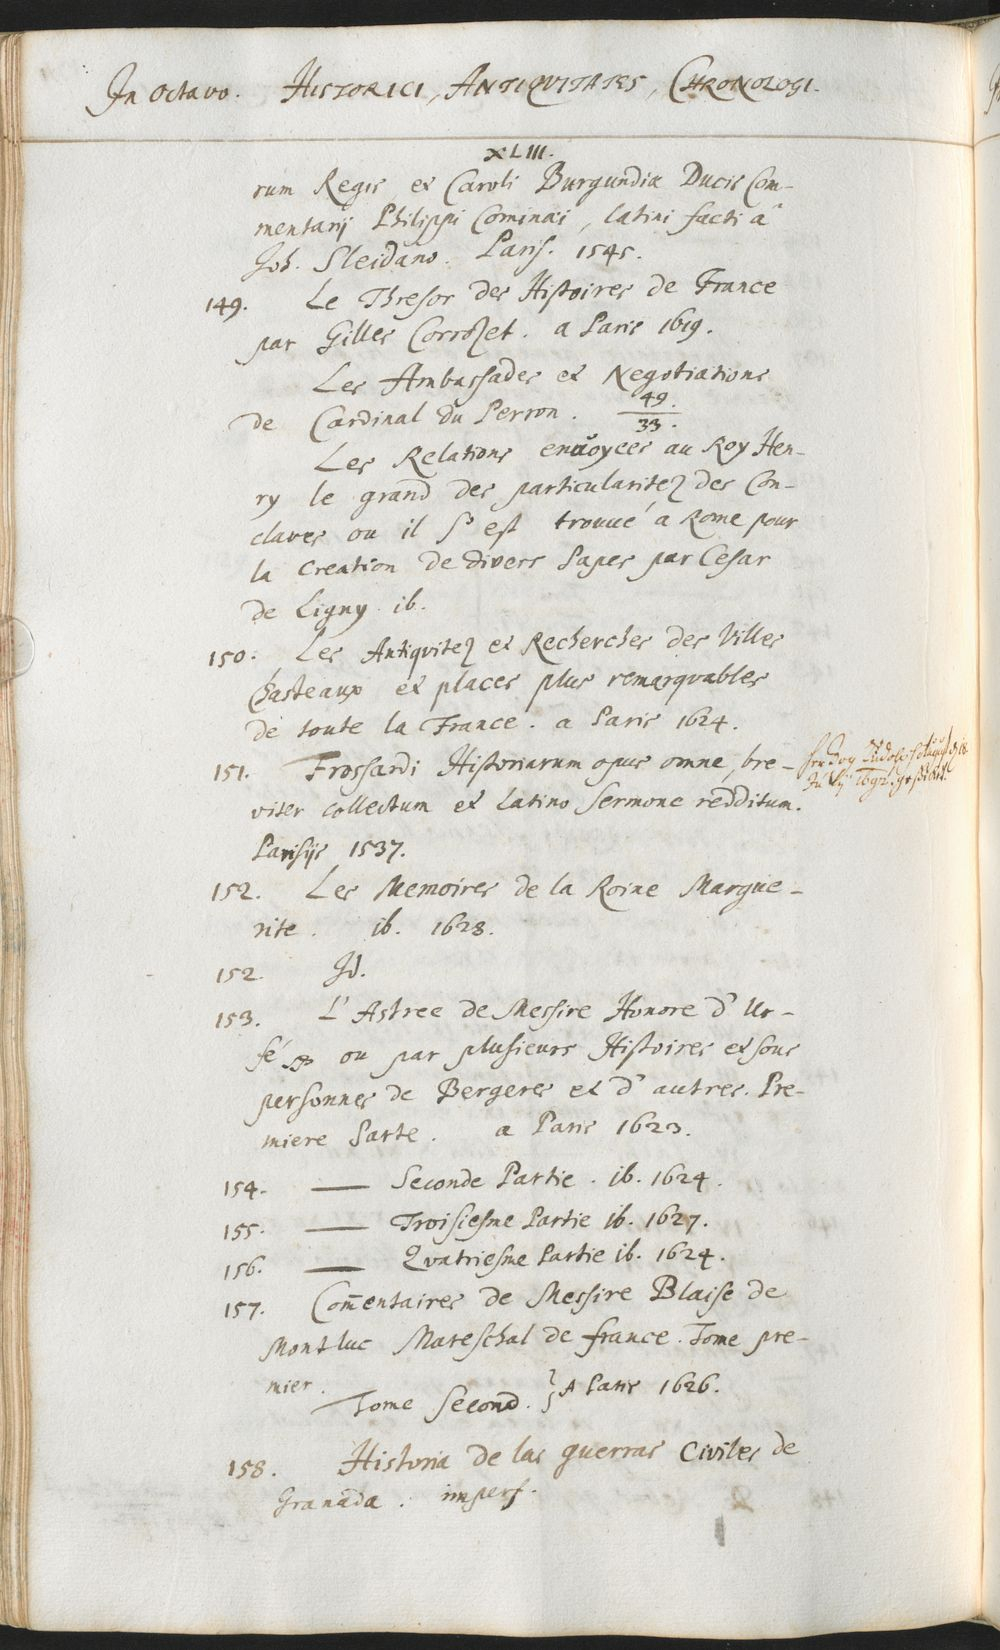 In Octavo. HISTORICI, ANTIQVITATES, CHRONOLOGI.
XLIII.
rum Regis et Caroli Burgundiæ Ducis Com-
mentarij Philippi Cominæi, latini facti â
Joh. Sleidano. Paris. 1545.
149. Le Thresor des Histoires de France
par Gilles Corrozet. a Paris 1619.
Les Ambassades et Negotiations
de Cardinal du Perron. 49.
33.
Les Relations envoyees au Roy Hen-
ry le grand des particularitez des Con-
claves ou il s'est trouué a Rome pour
la Creation de divers Papes par Cesar
de Ligny. ib.
150. Les Antiqvitez et Recherches des Villes
Chasteaux et places plus remarqvables
de toute la France. a Paris 1624.
151. Frossardi Historiarum opus omne, bre-
viter collectum et Latino Sermone redditum.
Parisijs 1537.
152. Les Memoires de la Roine Margue-
rite. ib. 1628.
152. Id.
153. L'Astree de Messire Honore d'Ur-
fé ou par plusieurs Histoires et sous
personnes de Bergeres et d'autres. Pre-
miere Parte. a Paris 1623.
154. — Seconde Partie. ib. 1624.
155. — Troisiesme Partie ib. 1627.
156. — Qvatriesme Partie ib. 1624.
157. Com̄entaires de Messire Blaise de
Montluc Mareschal de france. Tome pre-
mier.
Tome Second. } A Paris 1626.
158. Historia de las guerras Civiles de
Granada. imperf.